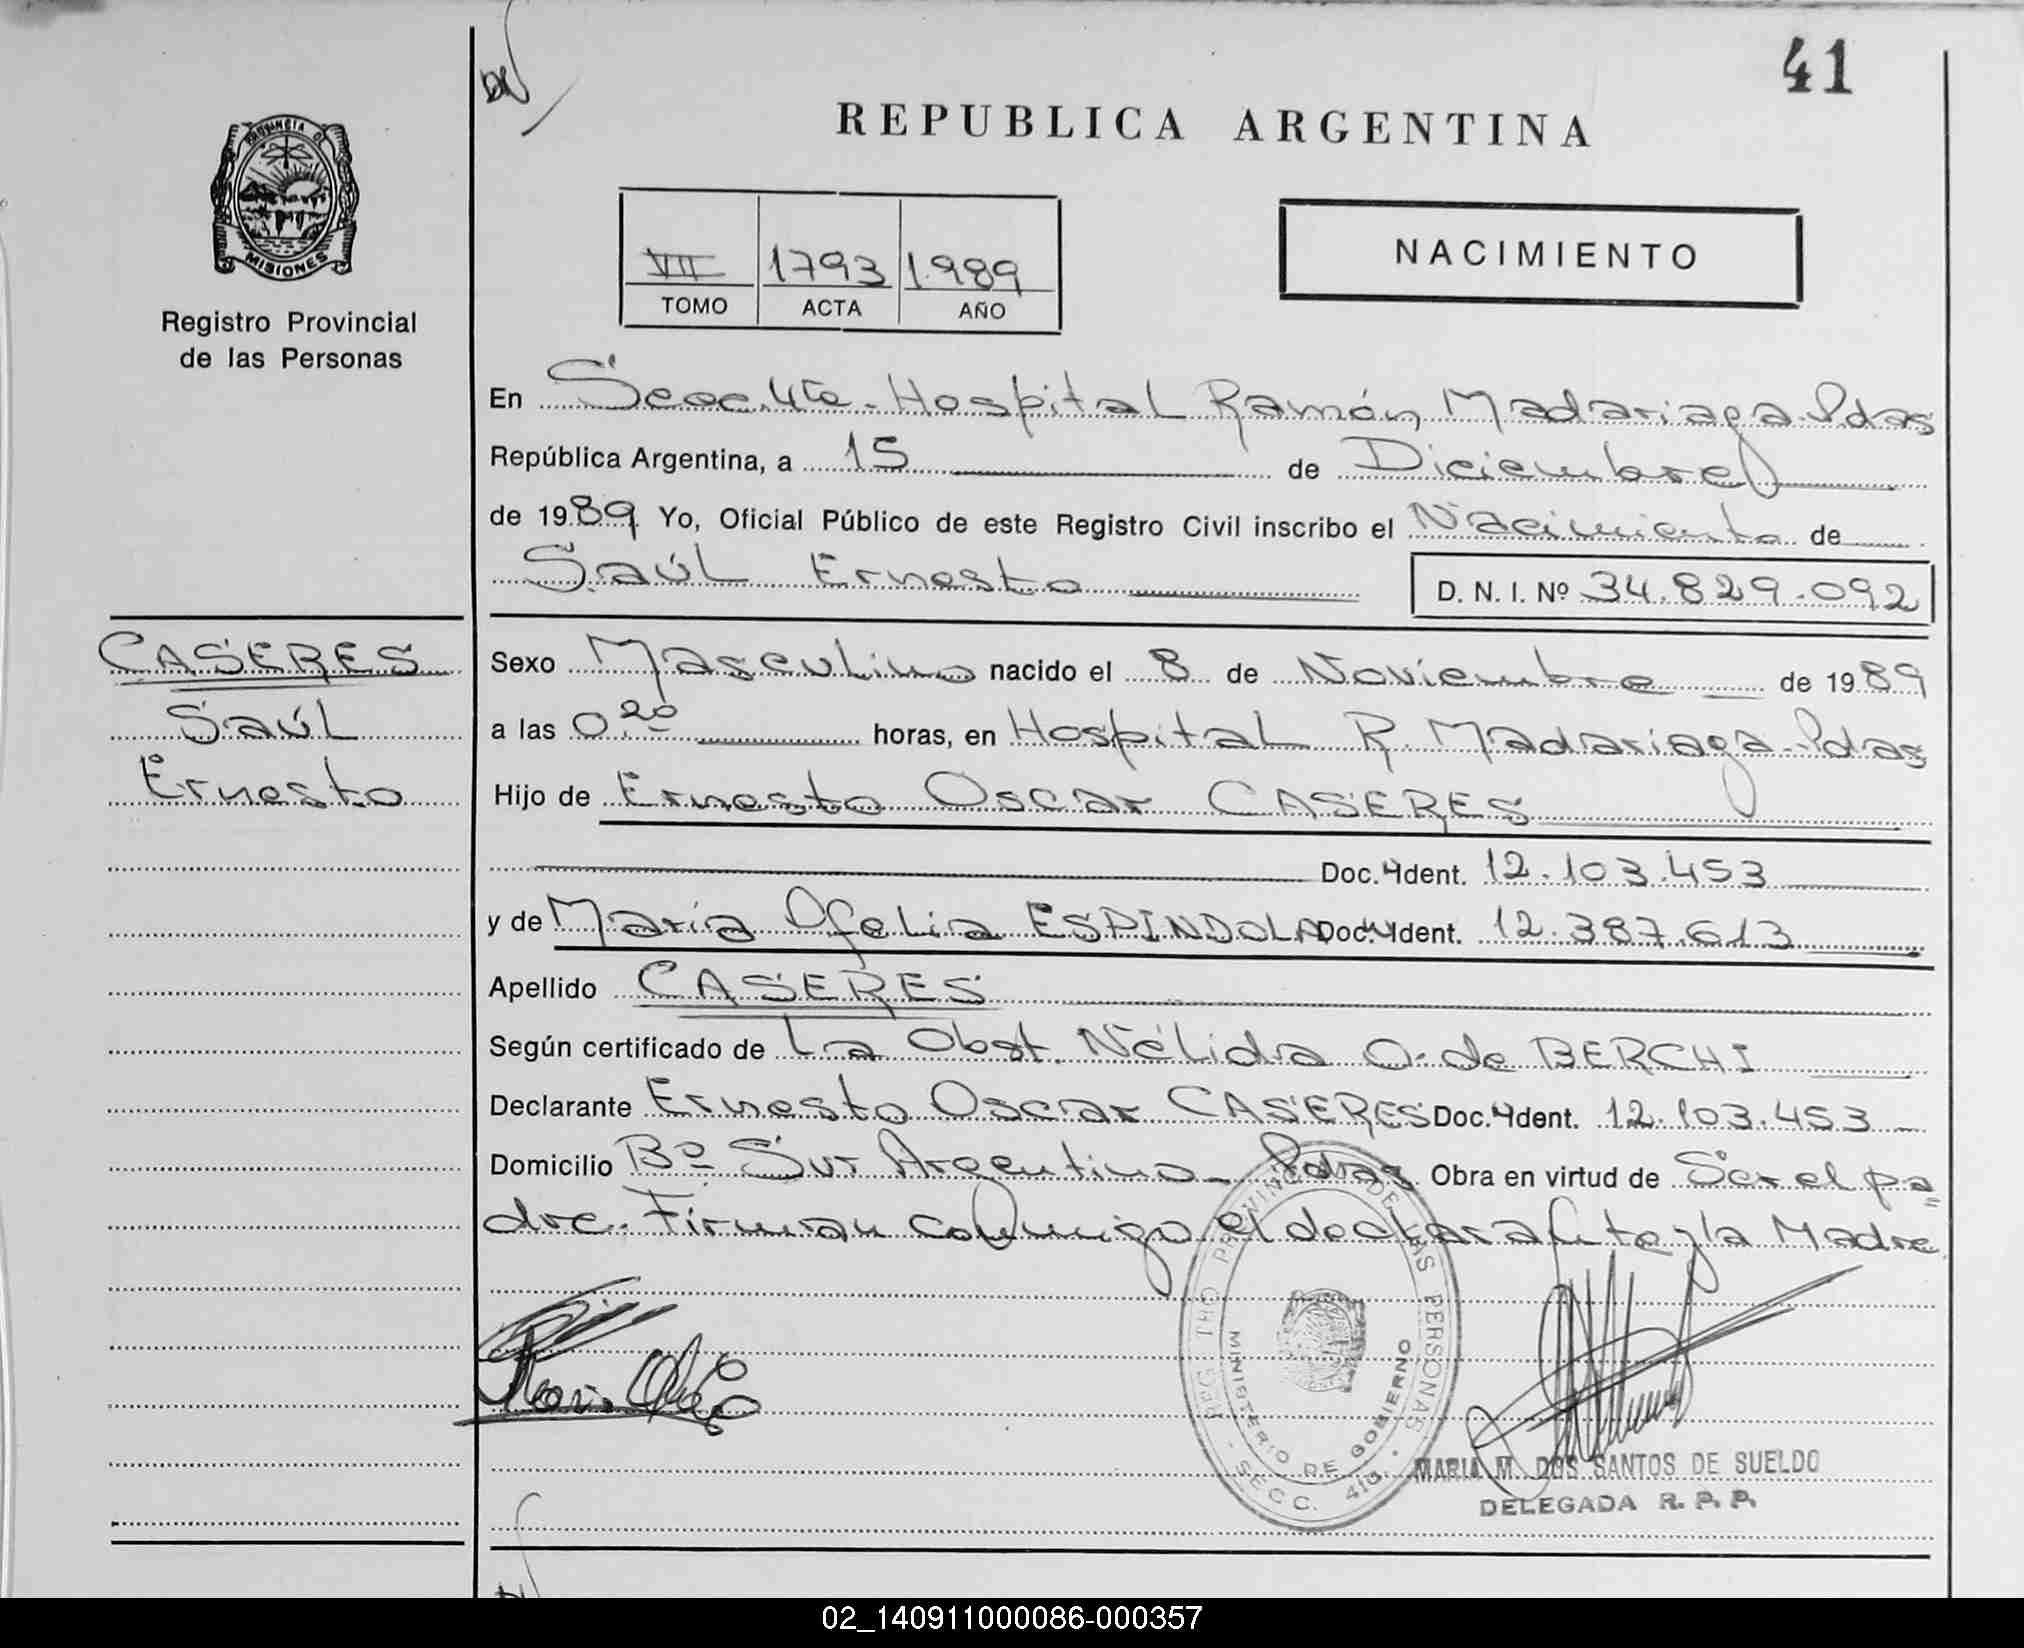 41
REPUBLICA ARGENTINA
PROVINCIA DE
MISIONES
Registro Provincial
de las Personas
VII 1793 1.989
TOMO ACTA AÑO
NACIMIENTO
En Secc. 4ta. Hospital Ramón Madariaga-Pdas
República Argentina, a 15 de Diciembre
de 1989 Yo, Oficial Público de este Registro Civil inscribo el Nacimiento de
Saúl Ernesto D. N. I. Nº 34.829.092
CASERES
Saúl
Ernesto
Sexo Masculino nacido el 8 de Noviembre de 1989
a las 0.20 horas, en Hospital R. Madariaga-Pdas
Hijo de Ernesto Oscar CASERES
Doc. Ident. 12.103.453
y de María Ofelia ESPINDOLA Doc. Ident. 12.387.613
Apellido CASERES
Según certificado de La Obst. Nélida O. de BERCHI
Declarante Ernesto Oscar CASERES Doc. Ident. 12.103.453
Domicilio Bº Sur Argentino - Pdas Obra en virtud de Ser el pa=
dre. Firman conmigo el declarante y la Madre
REGISTRO PROVINCIAL DE LAS PERSONAS
MINISTERIO DE GOBIERNO
SECC. 4ta.
MARIA M. DOS SANTOS DE SUELDO
DELEGADA R. P. P.
02_140911000086-000357